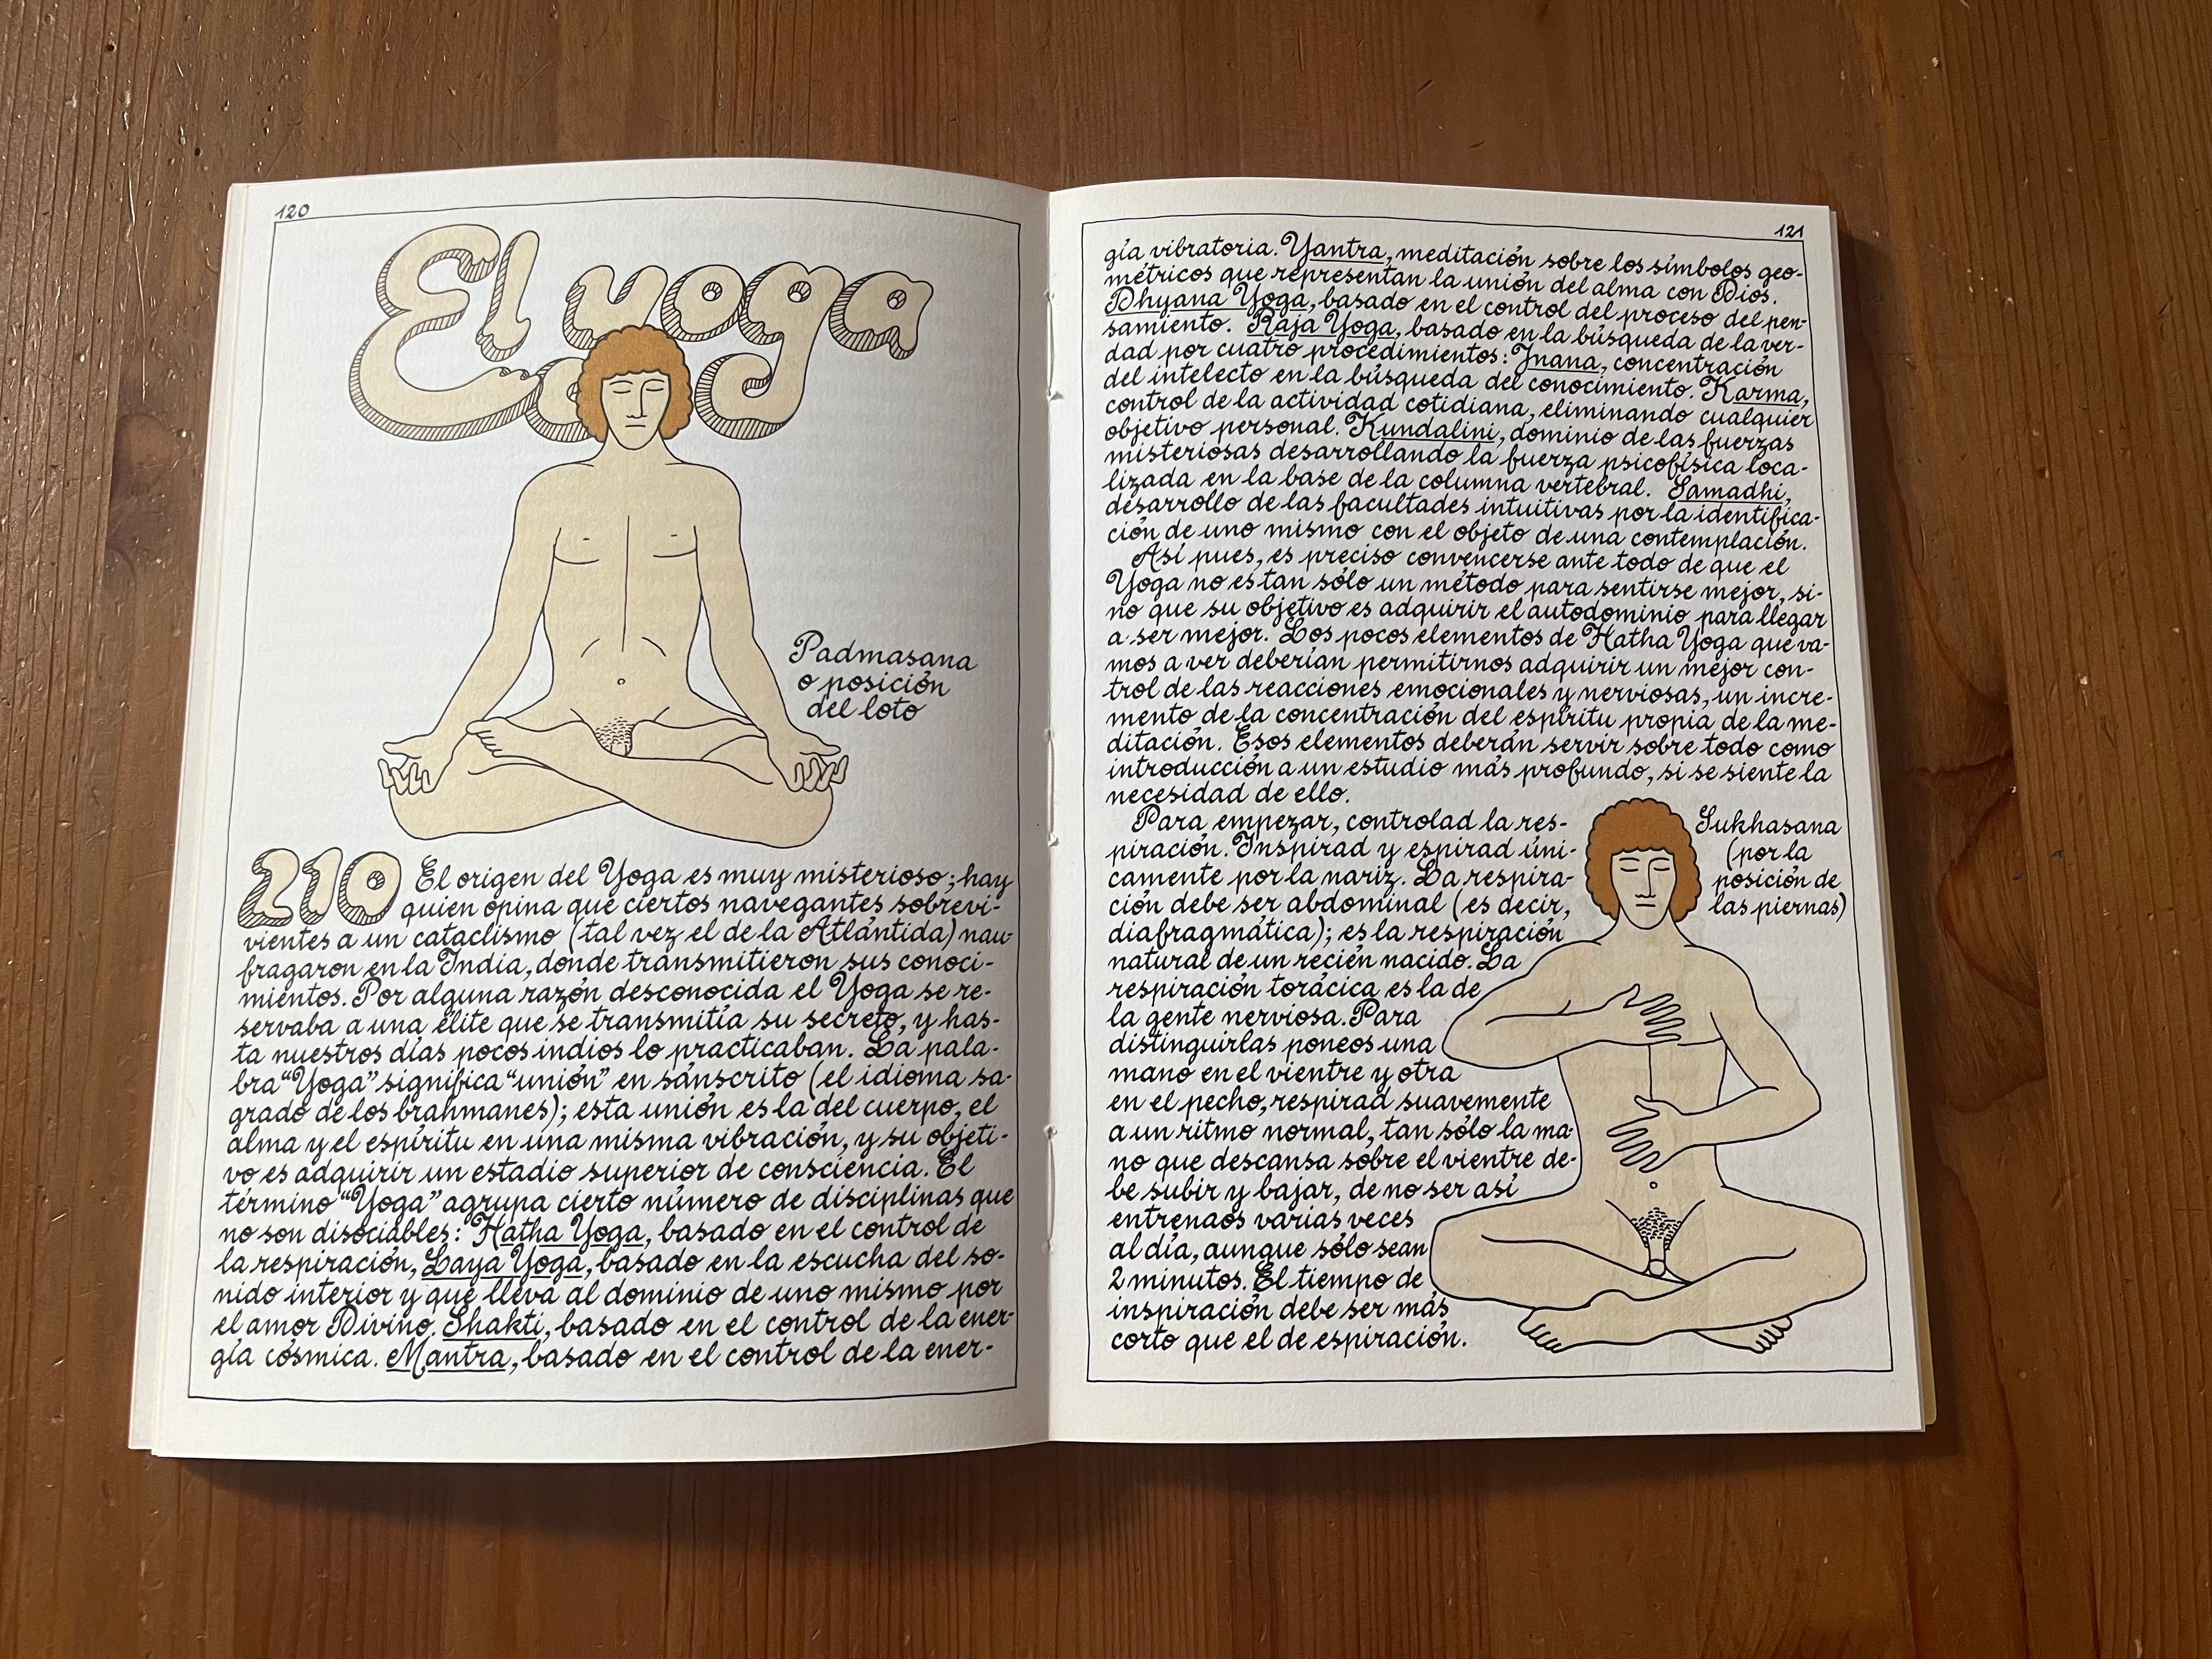 120
El yoga
Padmasana
o posición
del loto
210 El origen del Yoga es muy misterioso; hay
quien opina que ciertos navegantes sobrevi-
vientes a un cataclismo (tal vez el de la Atlántida) nau-
fragaron en la India, donde transmitieron sus conoci-
mientos. Por alguna razón desconocida el Yoga se re-
servaba a una élite que se transmitía su secreto, y has-
ta nuestros días pocos indios lo practicaban. La pala-
bra "Yoga" significa "unión" en sánscrito (el idioma sa-
grado de los brahmanes); esta unión es la del cuerpo, el
alma y el espíritu en una misma vibración, y su objeti-
vo es adquirir un estadio superior de consciencia. El
término "Yoga" agrupa cierto número de disciplinas que
no son disociables: Hatha Yoga, basado en el control de
la respiración, Laya Yoga, basado en la escucha del so-
nido interior y que lleva al dominio de uno mismo por
el amor Divino. Shakti, basado en el control de la ener-
gía cósmica. Mantra, basado en el control de la ener-
121
gía vibratoria. Yantra, meditación sobre los símbolos geo-
métricos que representan la unión del alma con Dios.
Dhyana Yoga, basado en el control del proceso del pen-
samiento. Raja Yoga, basado en la búsqueda de la ver-
dad por cuatro procedimientos: Jnana, concentración
del intelecto en la búsqueda del conocimiento. Karma,
control de la actividad cotidiana, eliminando cualquier
objetivo personal. Kundalini, dominio de las fuerzas
misteriosas desarrollando la fuerza psicofísica loca-
lizada en la base de la columna vertebral. Samadhi,
desarrollo de las facultades intuitivas por la identifica-
ción de uno mismo con el objeto de una contemplación.
Así pues, es preciso convencerse ante todo de que el
Yoga no es tan sólo un método para sentirse mejor, si-
no que su objetivo es adquirir el autodominio para llegar
a ser mejor. Los pocos elementos de Hatha Yoga que va-
mos a ver deberían permitirnos adquirir un mejor con-
trol de las reacciones emocionales y nerviosas, un incre-
mento de la concentración del espíritu propia de la me-
ditación. Esos elementos deberán servir sobre todo como
introducción a un estudio más profundo, si se siente la
necesidad de ello.
Para empezar, controlad la res-
piración. Inspirad y espirad úni-
camente por la nariz. La respira-
ción debe ser abdominal (es decir,
diafragmática); es la respiración
natural de un recién nacido. La
respiración torácica es la de
la gente nerviosa. Para
distinguirlas poneos una
mano en el vientre y otra
en el pecho, respirad suavemente
a un ritmo normal, tan sólo la ma-
no que descansa sobre el vientre de-
be subir y bajar, de no ser así
entrenaos varias veces
al día, aunque sólo sean
2 minutos. El tiempo de
inspiración debe ser más
corto que el de espiración.
Sukhasana
(por la
posición de
las piernas)